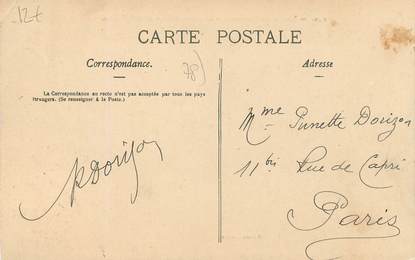 12t
CARTE POSTALE
Correspondance.
Adresse
78)
La Correspondance au recto n'est pas acceptée par tous les pays
étrangers. (Se renseigner à la Poste.)
Mme Ninette Dorizon
11bis Rue de Capri
Paris